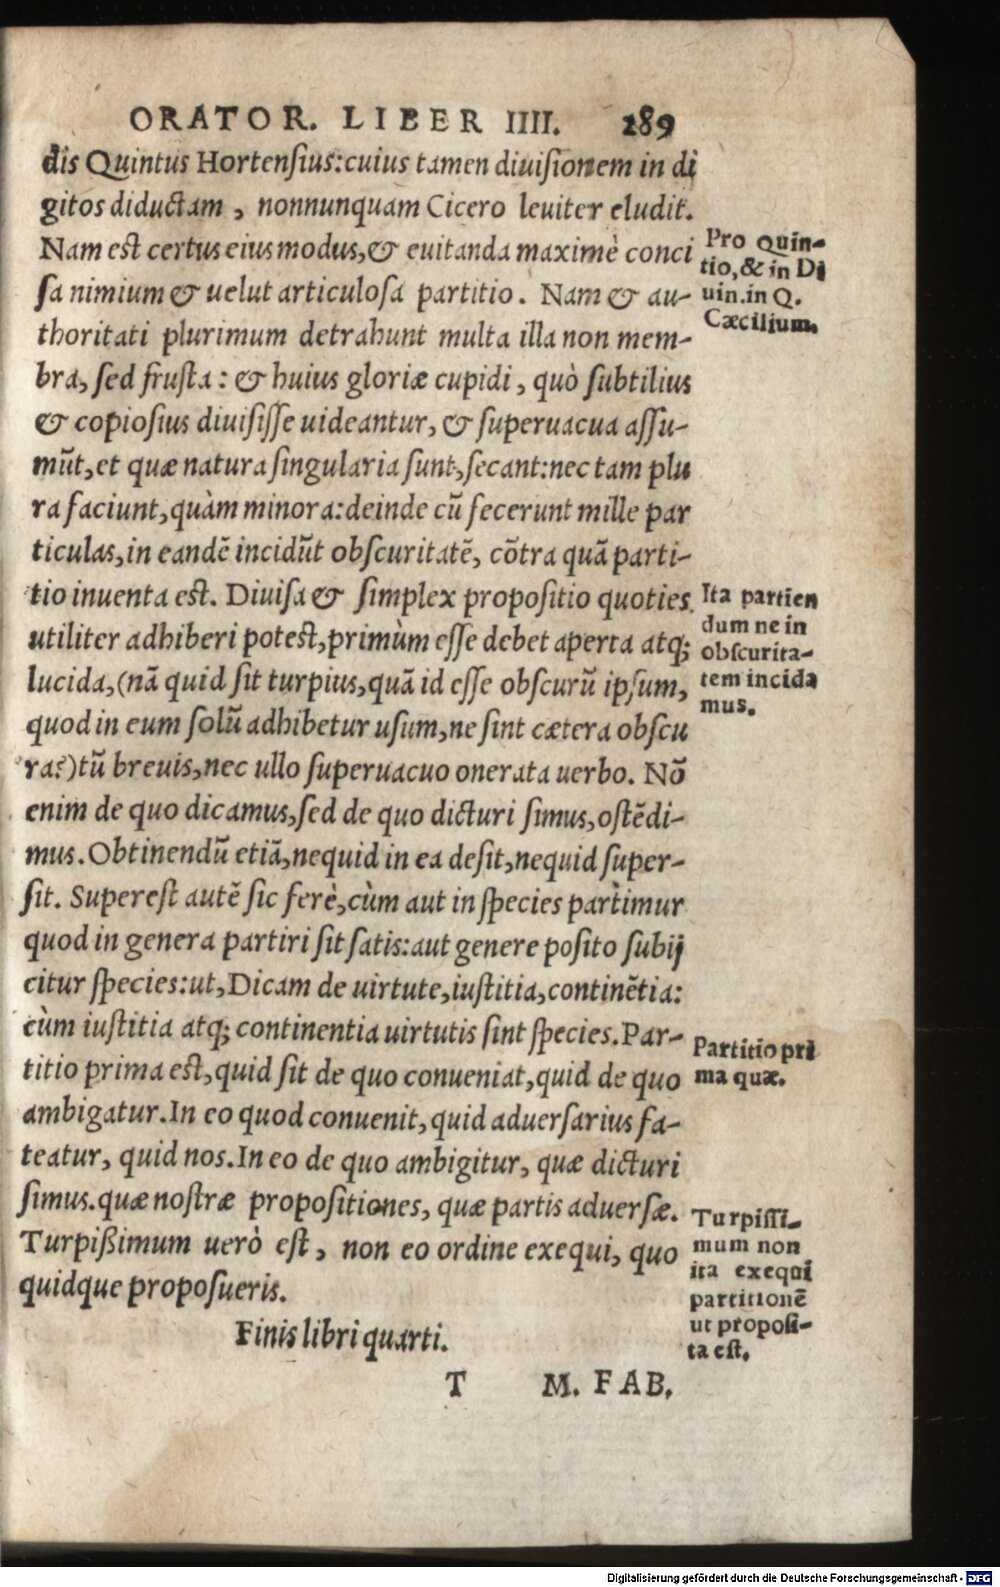 ORATOR. LIBER IIII. 189
dis Quintus Hortensius:cuius tamen diuisionem in di
gitos diductam , nonnunquam Cicero leuiter eludit.
Nam est certus eius modus,& euitanda maximè conci
sa nimium & uelut articulosa partitio. Nam & au-
thoritati plurimum detrahunt multa illa non mem-
bra, sed frusta : & huius gloriæ cupidi, quò subtilius
& copiosius diuisisse uideantur, & superuacua assu-
mũt, et quæ natura singularia sunt, secant:nec tam plu
ra faciunt,quàm minora:deinde cũ fecerunt mille par
ticulas,in eandē incidũt obscuritatē, cõtra quã parti-
tio inuenta est. Diuisa & simplex propositio quoties
utiliter adhiberi potest,primùm esse debet aperta atq;
lucida,(nã quid sit turpius,quã id esse obscurũ ipsum,
quod in eum solũ adhibetur usum,ne sint cætera obscu
ra?)tũ breuis,nec ullo superuacuo onerata uerbo. Nõ
enim de quo dicamus,sed de quo dicturi simus,ostēdi-
mus. Obtinendũ etiã,nequid in ea desit,nequid super-
sit. Superest autē sic ferè,cùm aut in species partimur
quod in genera partiri sit satis:aut genere posito subij
citur species:ut,Dicam de uirtute,iustitia,continētia:
cùm iustitia atq; continentia uirtutis sint species. Par-
titio prima est,quid sit de quo conueniat,quid de quo
ambigatur. In eo quod conuenit, quid aduersarius fa-
teatur, quid nos. In eo de quo ambigitur, quæ dicturi
simus. quæ nostræ propositiones, quæ partis aduersæ.
Turpißimum uerò est, non eo ordine exequi, quo
quidque proposueris.
Finis libri quarti.
T M. FAB.
Pro Quin-
tio,& in Di
uin.in Q.
Cæcilium.
Ita partien
dum ne in
obscurita-
tem incida
mus.
Partitio pri
ma quæ.
Turpissi-
mum non
ita exequi
partitionē
ut proposi-
ta est.
Digitalisierung gefördert durch die Deutsche Forschungsgemeinschaft - DFG